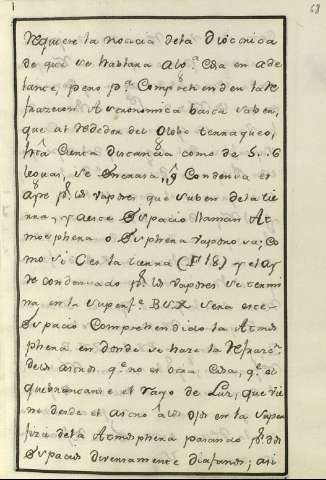 68
requiere la noticia dela Dioctrica
de que se hablara alg.ª Cosa en ade
lante, pero p.ª Comprehender la Re
frazcion Astronomica basta saber,
que al rededor del Globo terraqueo,
hta Cierta distancia como de 5..6
leguas, se encrasa, y Condensa el
Ayre p.r los vapores que suben dela tie
rra, y a este Espacio llaman At
mosphera o Esphera vaporosa; Co
mo si C es la tierra (F 18) y el Ay
re condensado p.r los vapores se termi
na en la superf.e BVX sera este
Espacio Comprehendido la Atmos
phera en donde se haze la Refrazc.n
delos astros q.e no es otra Cosa, q.e el
quebrantarse el rayo de Luz, que vie
ne desde el astro â los ojos en la super
fizie dela Atmosphera pasando p.r dos
Espacios diversamente diafanos; asi